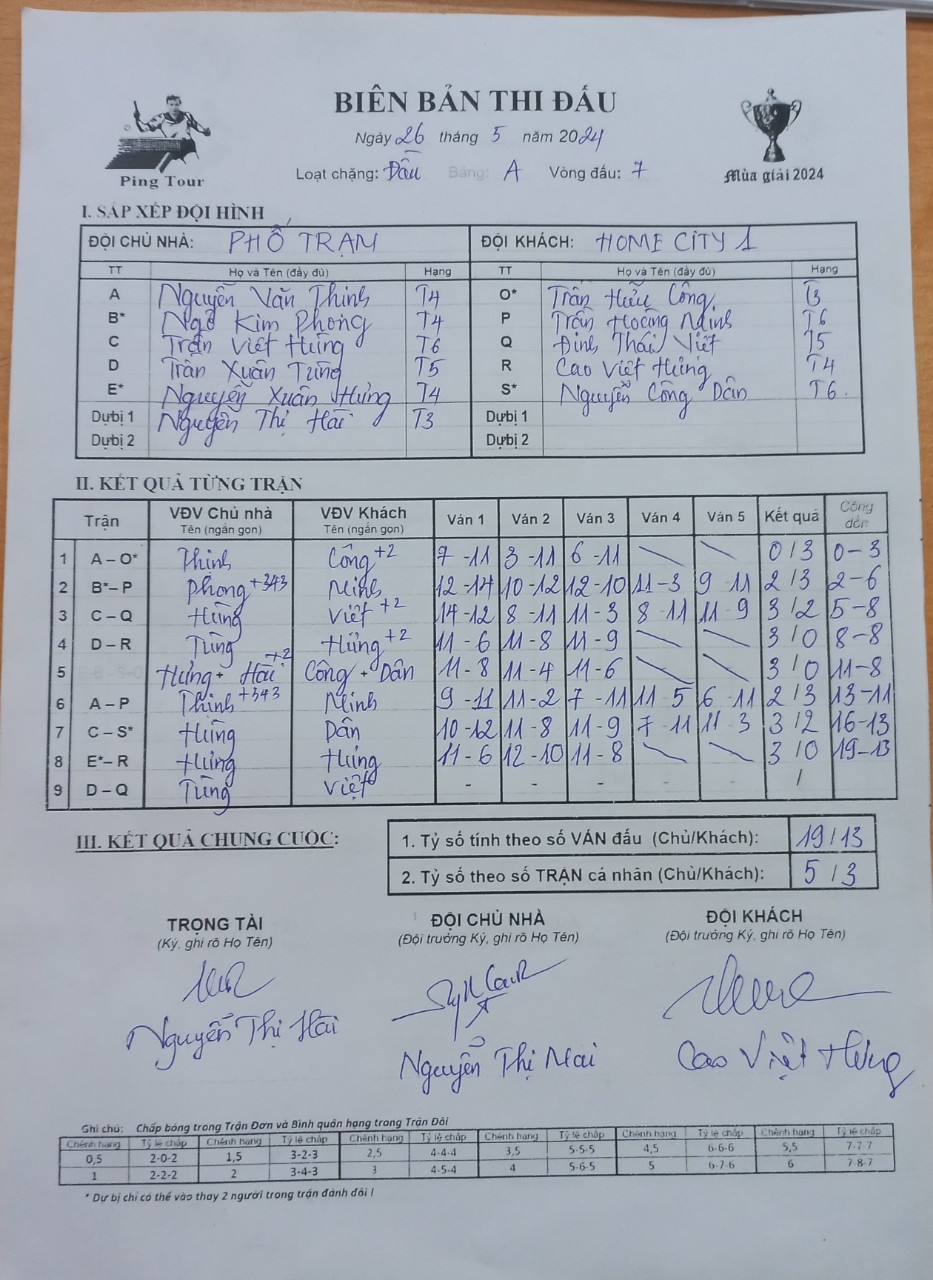 BIÊN BẢN THI ĐẤU
Ngày 26 tháng 5 năm 2024
Ping Tour
Loạt chặng: Đầu Bảng: A Vòng đấu: 7
Mùa giải 2024
I. SẮP XẾP ĐỘI HÌNH
ĐỘI CHỦ NHÀ: PHỐ TRẠM ĐỘI KHÁCH: HOME CITY 1
TT Họ và Tên (đầy đủ) Hạng TT Họ và Tên (đầy đủ) Hạng
A Nguyễn Văn Thinh T4 O* Trần Hữu Công T3
B* Ngô Kim Phong T4 P Trần Hoàng Minh T6
C Trần Việt Hùng T6 Q Đinh Thái Việt T5
D Trần Xuân Tùng T5 R Cao Việt Hưng T4
E* Nguyễn Xuân Hưng T4 S* Nguyễn Công Dân T6.
Dự bị 1 Nguyễn Thị Hài T3 Dự bị 1
Dự bị 2 Dự bị 2
II. KẾT QUẢ TỪNG TRẬN
Trận VĐV Chủ nhà Tên (ngắn gọn) VĐV Khách Tên (ngắn gọn) Ván 1 Ván 2 Ván 3 Ván 4 Ván 5 Kết quả Cộng dồn
1 A – O* Thinh Công +2 7 - 11 3 - 11 6 - 11 0 / 3 0 - 3
2 B* – P Phong +343 Minh 12 - 14 10 - 12 12 - 10 11 - 3 9 11 2 / 3 2 - 6
3 C – Q Hùng Việt +2 14 - 12 8 - 11 11 - 3 8 - 11 11 - 9 3 / 2 5 - 8
4 D – R Tùng Hưng +2 11 - 6 11 - 8 11 - 9 3 / 0 8 - 8
5 Hưng + Hài +2 Công + Dân 11 - 8 11 - 4 11 - 6 3 / 0 11 - 8
6 A – P Thinh +343 Minh 9 - 11 11 - 2 7 - 11 11 5 6 11 2 / 3 13 - 11
7 C – S* Hùng Dân 10 - 12 11 - 8 11 - 9 7 - 11 11 3 3 / 2 16 - 13
8 E* – R Hưng Hưng 11 - 6 12 - 10 11 - 8 3 / 0 19 - 13
9 D – Q Tùng Việt - - - - - /
III. KẾT QUẢ CHUNG CUỘC:
1. Tỷ số tính theo số VÁN đấu (Chủ/Khách): 19 / 13
2. Tỷ số theo số TRẬN cá nhân (Chủ/Khách): 5 / 3
TRỌNG TÀI ĐỘI CHỦ NHÀ ĐỘI KHÁCH
(Ký, ghi rõ Họ Tên) (Đội trưởng Ký, ghi rõ Họ Tên) (Đội trưởng Ký, ghi rõ Họ Tên)
Nguyễn Thị Hài Nguyễn Thị Mai Cao Việt Hưng
Ghi chú: Chấp bóng trong Trận Đơn và Bình quân hạng trong Trận Đôi
Chênh hạng Tỷ lệ chấp Chênh hạng Tỷ lệ chấp Chênh hạng Tỷ lệ chấp Chênh hạng Tỷ lệ chấp Chênh hạng Tỷ lệ chấp Chênh hạng Tỷ lệ chấp
0,5 2-0-2 1,5 3-2-3 2,5 4-4-4 3,5 5-5-5 4,5 6-6-6 5,5 7-7-7
1 2-2-2 2 3-4-3 3 4-5-4 4 5-6-5 5 6-7-6 6 7-8-7
* Dự bị chỉ có thể vào thay 2 người trong trận đánh đôi !